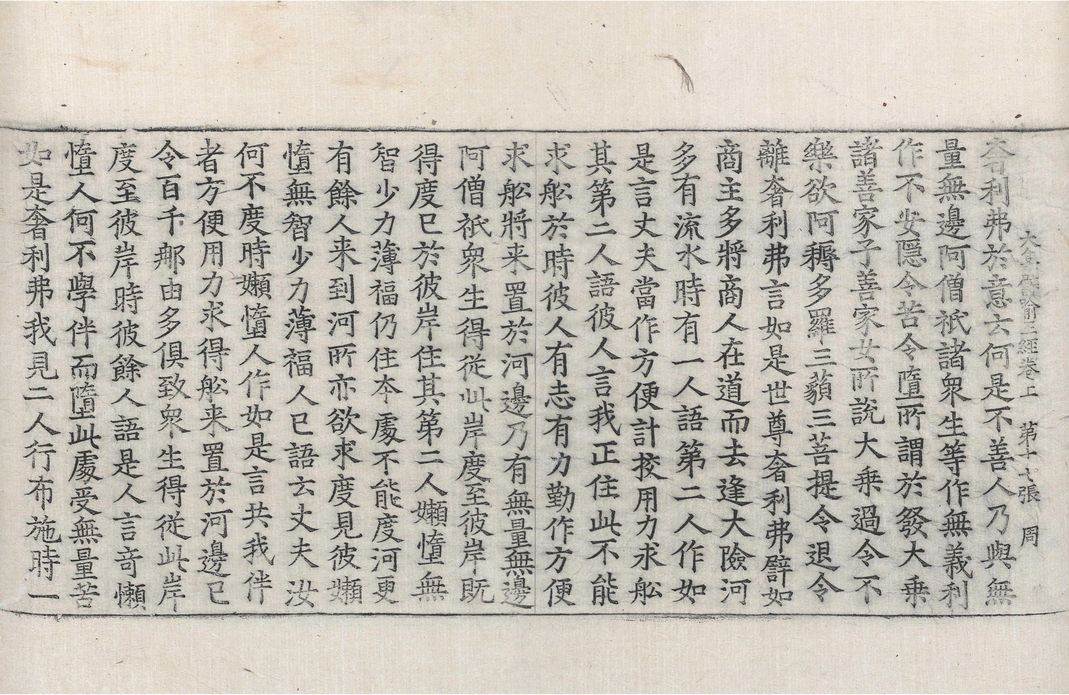 喻三經卷上 第十七張 周
奢利弗於意云何是不善人乃與無
量無邊阿僧祇諸衆生等作無義利
作不安隱令苦令墮所謂於發大乗
諸善家子善家女所說大乗過令不
樂欲阿耨多羅三藐三菩提令退令
離奢利弗言如是世尊奢利弗譬如
商主多將商人在道而去逢大險河
多有流水時有一人語第二人作如
是言丈夫當作方便計挍用力求舩
其第二人語彼人言我正住此不能
求舩於時彼人有志有力勤作方便
求舩將来置於河邊乃有無量無邊
阿僧祇衆生得従此岸度至彼岸既
得度已於彼岸住其第二人嬾憜無
智少力薄福仍住夲處不能度河更
有餘人来到河所亦欲求度見彼嬾
憜無智少力薄福人已語云丈夫汝
何不度時嬾憜人作如是言共我伴
者方便用力求得舩来置於河邊已
令百千那由多俱致衆生得従此岸
度至彼岸時彼餘人語是人言竒嬾
憜人何不學伴而墮此處受無量苦
如是奢利弗我見二人行布施時一